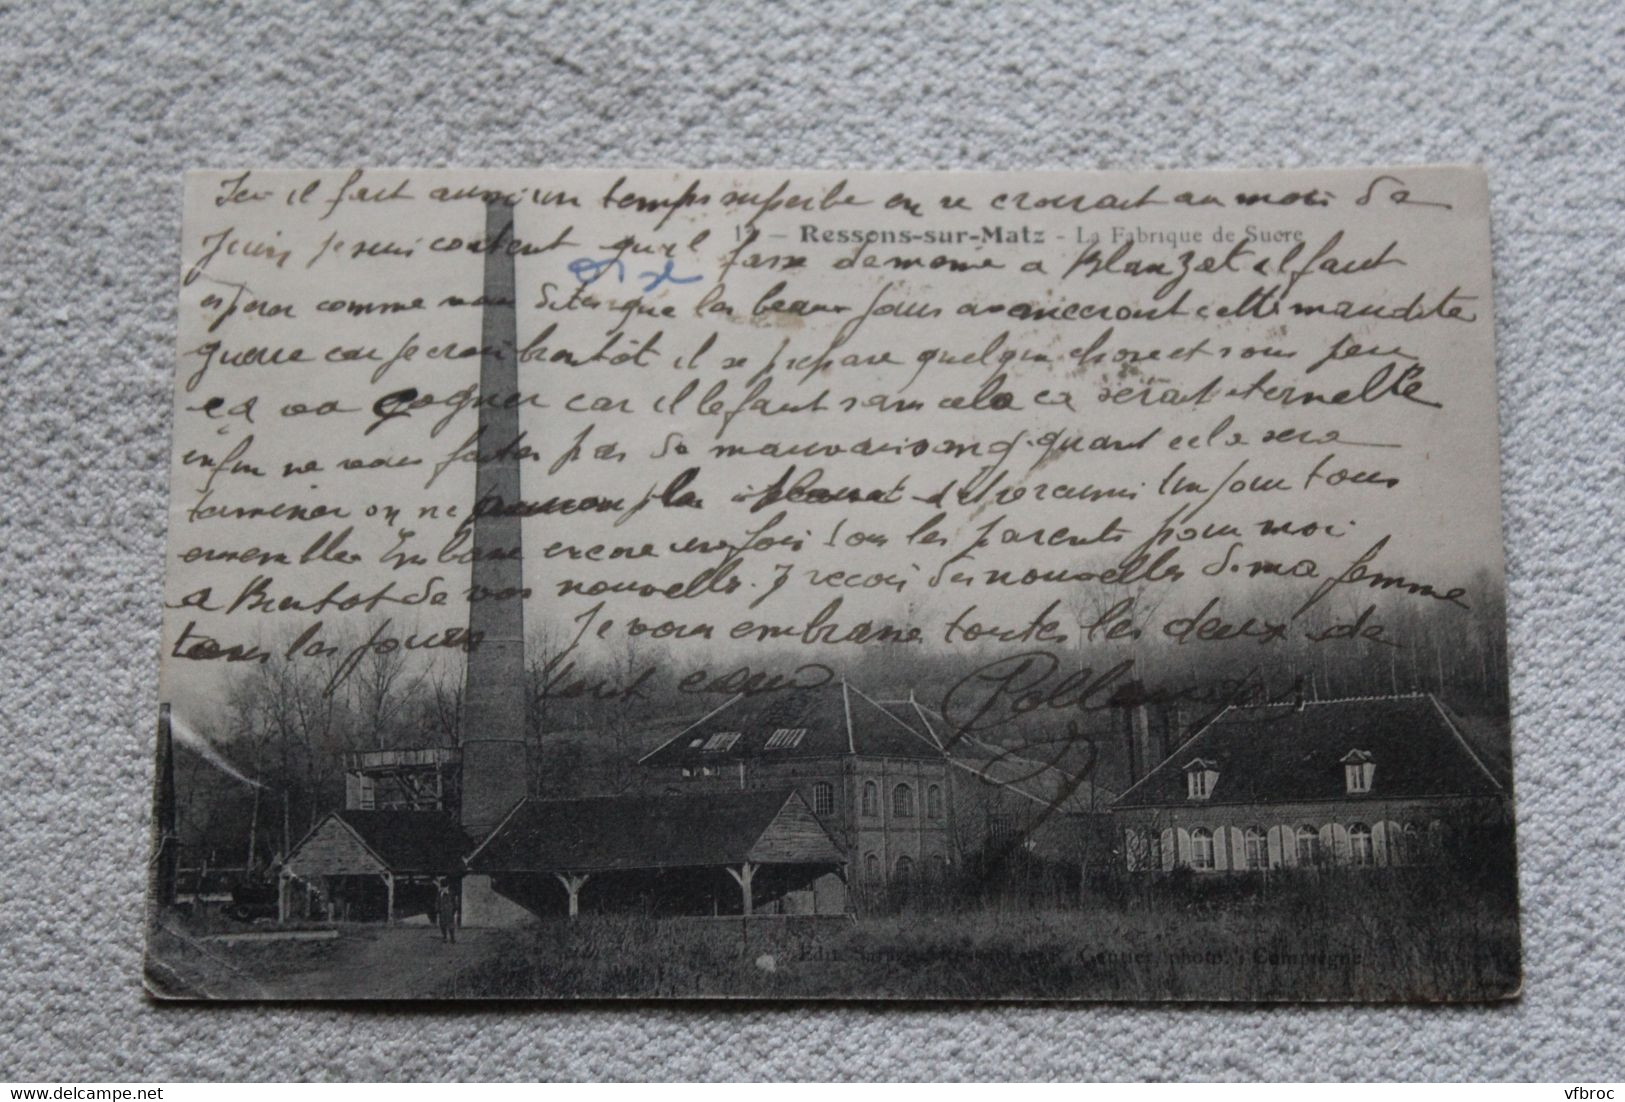 Ici il fait aussi un temps superbe on se croirait au mois de
12 - Ressons-sur-Matz - La Fabrique de Sucre
Juin, je suis content qu'il fasse de meme a Blanzat il faut
Oise
esperer comme vous dites que les beaux jours avanceront cette maudite
guerre car je crois bientôt il se prepare quelque chose et sous peu
ca va gagner car il le faut sans cela ca serait eternelle
enfin ne vous faites pas de mauvais sang quant cela sera
terminer on ne plus et sera unis un jour tous
ensembles Embrasse encore une fois tous les parents pour moi
a Bientot de vos nouvelles. J recois des nouvelles de ma femme
tous les jours Je vous embrasse toutes les deux de
tout coeur
Edit. Gantier, photo., Compiègne
vfbroc